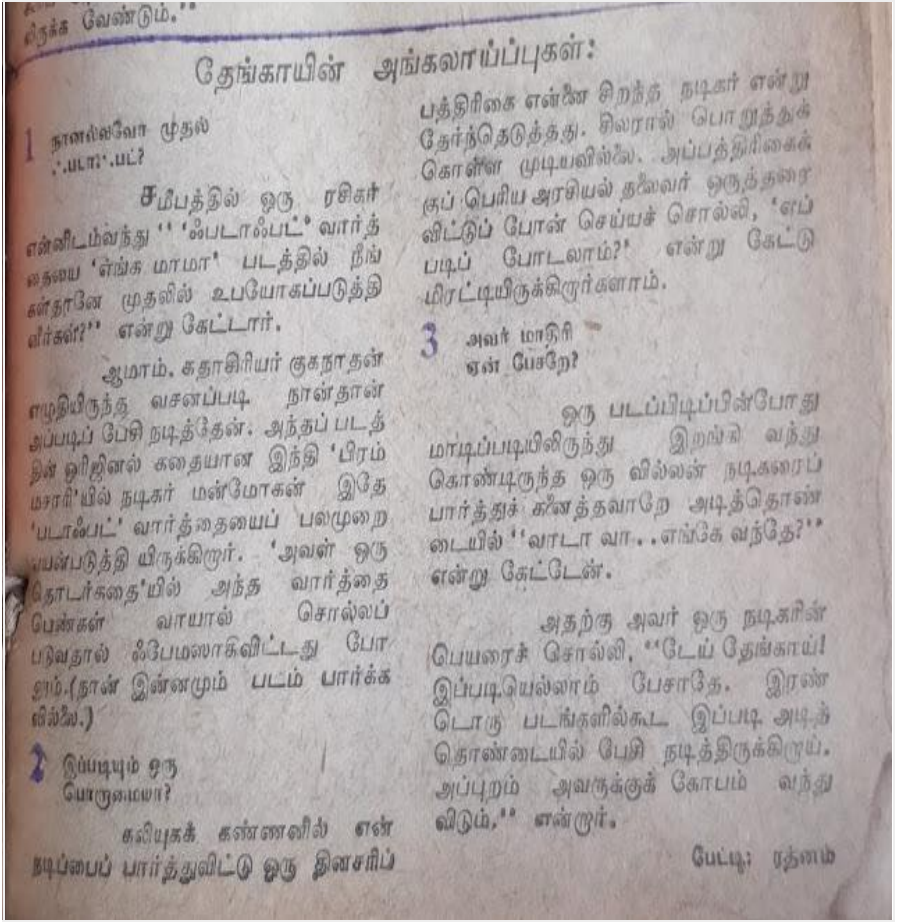 லிருக்க வேண்டும்.''
தேங்காயின் அங்கலாய்ப்புகள்:
1 நானல்லவோ முதல்
ஃபடாஃபட்?
சமீபத்தில் ஒரு ரசிகர்
என்னிடம்வந்து '' 'ஃபடாஃபட்' வார்த்
தையை 'எங்க மாமா' படத்தில் நீங்
கள்தானே முதலில் உபயோகப்படுத்தி
னீர்கள்?'' என்று கேட்டார்.
ஆமாம். கதாசிரியர் குகநாதன்
எழுதியிருந்த வசனப்படி நான்தான்
அப்படிப் பேசி நடித்தேன். அந்தப் படத்
தின் ஒரிஜினல் கதையான இந்தி 'பிரம்
மசாரி'யில் நடிகர் மன்மோகன் இதே
'படாஃபட்' வார்த்தையைப் பலமுறை
பயன்படுத்தி யிருக்கிறார். 'அவள் ஒரு
தொடர்கதை'யில் அந்த வார்த்தை
பெண்கள் வாயால் சொல்லப்
படுவதால் ஃபேமஸாகிவிட்டது போ
லும்.(நான் இன்னமும் படம் பார்க்க
வில்லை.)
2 இப்படியும் ஒரு
பொறாமையா?
கலியுகக் கண்ணனில் என்
நடிப்பைப் பார்த்துவிட்டு ஒரு தினசரிப்
பத்திரிகை என்னை சிறந்த நடிகர் என்று
தேர்ந்தெடுத்தது. சிலரால் பொறுத்துக்
கொள்ள முடியவில்லை. அப்பத்திரிகைக்
குப் பெரிய அரசியல் தலைவர் ஒருத்தரை
விட்டுப் போன் செய்யச் சொல்லி, 'எப்
படிப் போடலாம்?' என்று கேட்டு
மிரட்டியிருக்கிறார்களாம்.
3 அவர் மாதிரி
ஏன் பேசறே?
ஒரு படப்பிடிப்பின்போது
மாடிப்படியிலிருந்து இறங்கி வந்து
கொண்டிருந்த ஒரு வில்லன் நடிகரைப்
பார்த்துச் கனைத்தவாறே அடித்தொண்
டையில் ''வாடா வா..எங்கே வந்தே?''
என்று கேட்டேன்.
அதற்கு அவர் ஒரு நடிகரின்
பெயரைச் சொல்லி, ''டேய் தேங்காய்!
இப்படியெல்லாம் பேசாதே. இரண்
டொரு படங்களில்கூட இப்படி அடித்
தொண்டையில் பேசி நடித்திருக்கிறாய்.
அப்புறம் அவருக்குக் கோபம் வந்து
விடும்,'' என்றார்.
பேட்டி: ரத்னம்